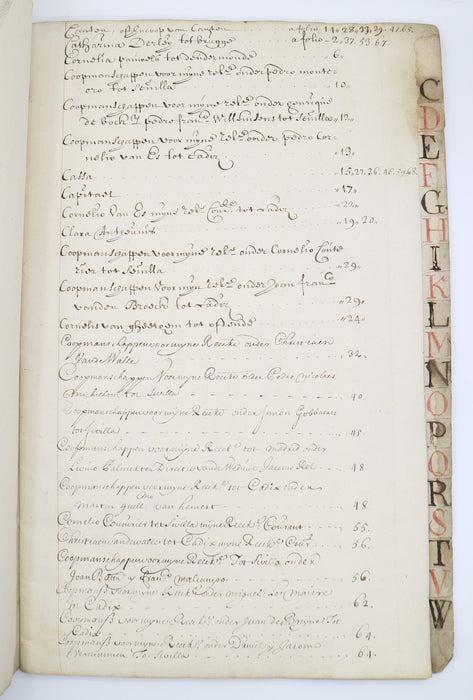 Canten ofte incoop van Canten a folio 11. 28. 33. 39. 47. 65.
Catharina Derley tot brugge a folio - 2. 37. 53. 67.
Cornelia pauwels tot dendermonde 6.
Coopmanschappen voor myne rek.e onder pedro monter
oro tot Sevilla 10.
Coopmanschappen voor myne rek.e onder
de bock & pedro fran.co Willemsens tot Sevilla 12.
Coopmanschappen voor myne rek.e onder pedro Cor-
nelio van Es tot Cadix 13.
Cassa 15. 27. 36. 46. 59. 68.
Capitael 17.
Cornelio van Es myne rek.e tot Cadix 22.
Clara Antheunis 19. 20.
Coopmanschappen voor myne rek.e onder Cornelio Coute
rier tot Sevilla 29.
Coopmanschappen voor myn rek.e onder Joan fran.co
vanden Broecke tot Cadix 29.
Cornelis van gheetruyen tot ostende 24.
Coopmanschappen voor myne Reecke onder Christiaen
Vande Walle 32.
Coopmanschappen Voor myne Reecke onder Pedro nicolaes
tot Sevilla 40.
Coopmanschappen voor myne Reecke onder Simon
tot Sevilla 45.
Coopmanschappen voor myne Reeck.e tot madrid onder
Livino vande Weduwe Jacomo 48.
Coopmanschappen voor myne Reeck.e tot Cadix onder
Martin van hemert 48
Cornelio Couvrier tot Sivilla myne Reeck.e Courant 55.
Christiaen vandewalle tot Cadix myne Reeck.e Cour.t 56.
Coopmanschappen voor myne Reeck.e Tot Sivilla onder
Joan Baut.a y Fran.co 56.
Coopmansch. voor myne Reeck.e onder miguel Le maitre
In Cadix 62.
Coopmansch. voor myne Reeck.e onder Jean de Bruyne Tot
Cadix 64.
Coopmansch. voor myne Reeck.e onder Daniel y Jacomo
Tot Sevilla 64.
C
D
E
F
G
H
I
K
L
M
N
O
P
Q
R
S
T
V
W